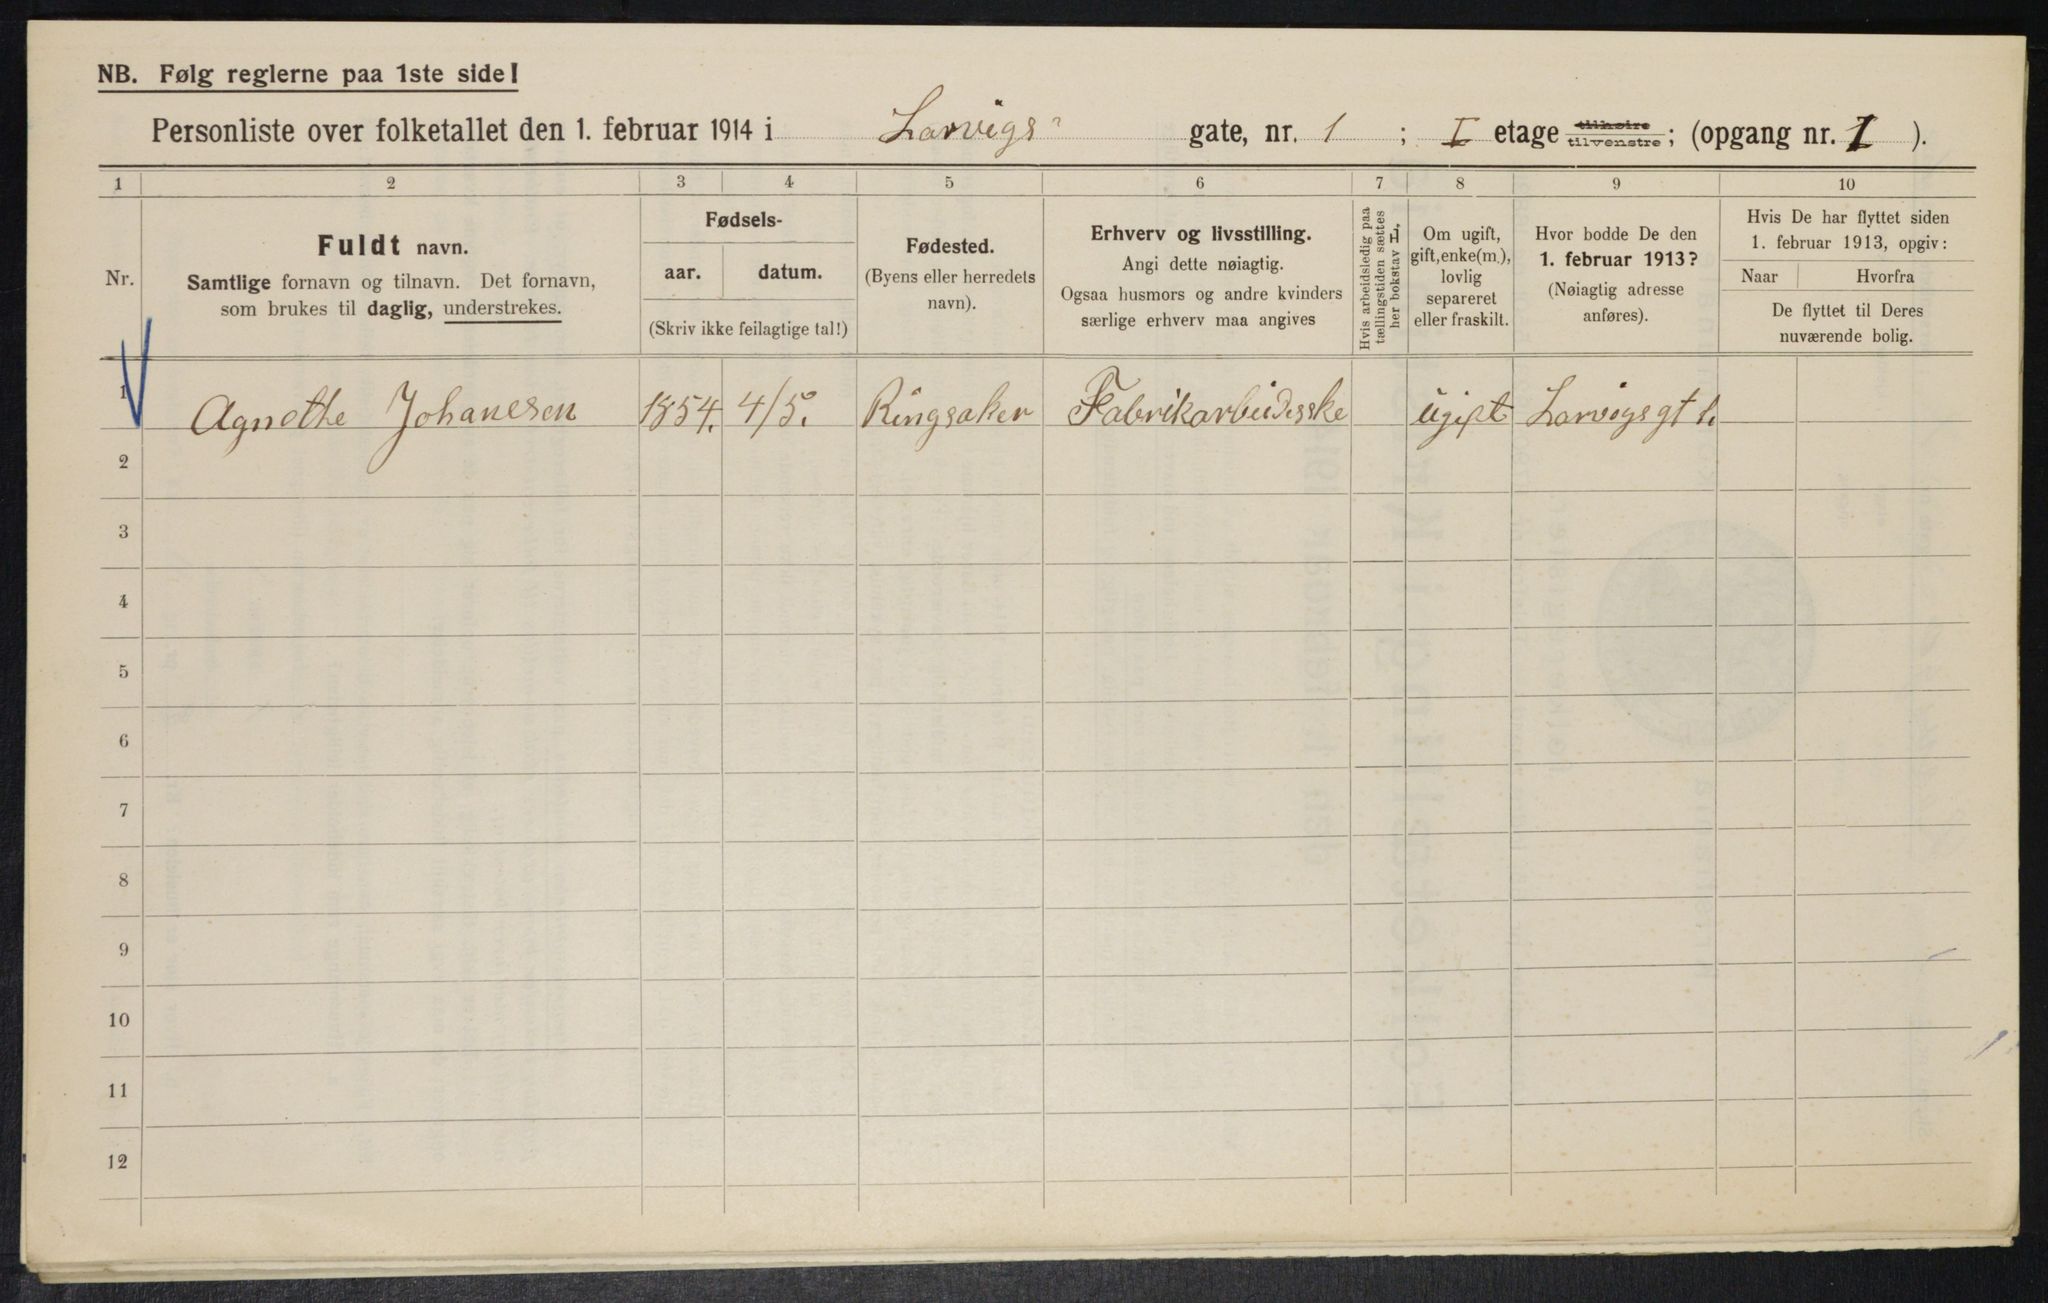 NB. Følg reglerne paa 1ste side!
Personliste over folketallet den 1. februar 1914 i Larvigs gate, nr. 1 ; I etage tilhøire tilvenstre ; (opgang nr. I ).
1 2 3 4 5 6 7 8 9 10
Nr.
Fuldt navn.
Samtlige fornavn og tilnavn. Det fornavn,
som brukes til daglig, understrekes.
Fødsels-
aar. datum.
(Skriv ikke feilagtige tal!)
Fødested.
(Byens eller herredets
navn).
Erhverv og livsstilling.
Angi dette nøiagtig.
Ogsaa husmors og andre kvinders
særlige erhverv maa angives
Hvis arbeidsledig paa
tællingstiden sættes
her bokstav L.
Om ugift,
gift, enke(m.),
lovlig
separeret
eller fraskilt.
Hvor bodde De den
1. februar 1913?
(Nøiagtig adresse
anføres).
Hvis De har flyttet siden
1. februar 1913, opgiv:
Naar Hvorfra
De flyttet til Deres
nuværende bolig.
1 Agnethe Johanesen 1854. 4/5. Ringsaker Fabrikarbeidesske ugift Larvigsgt 1.
2
3
4
5
6
7
8
9
10
11
12